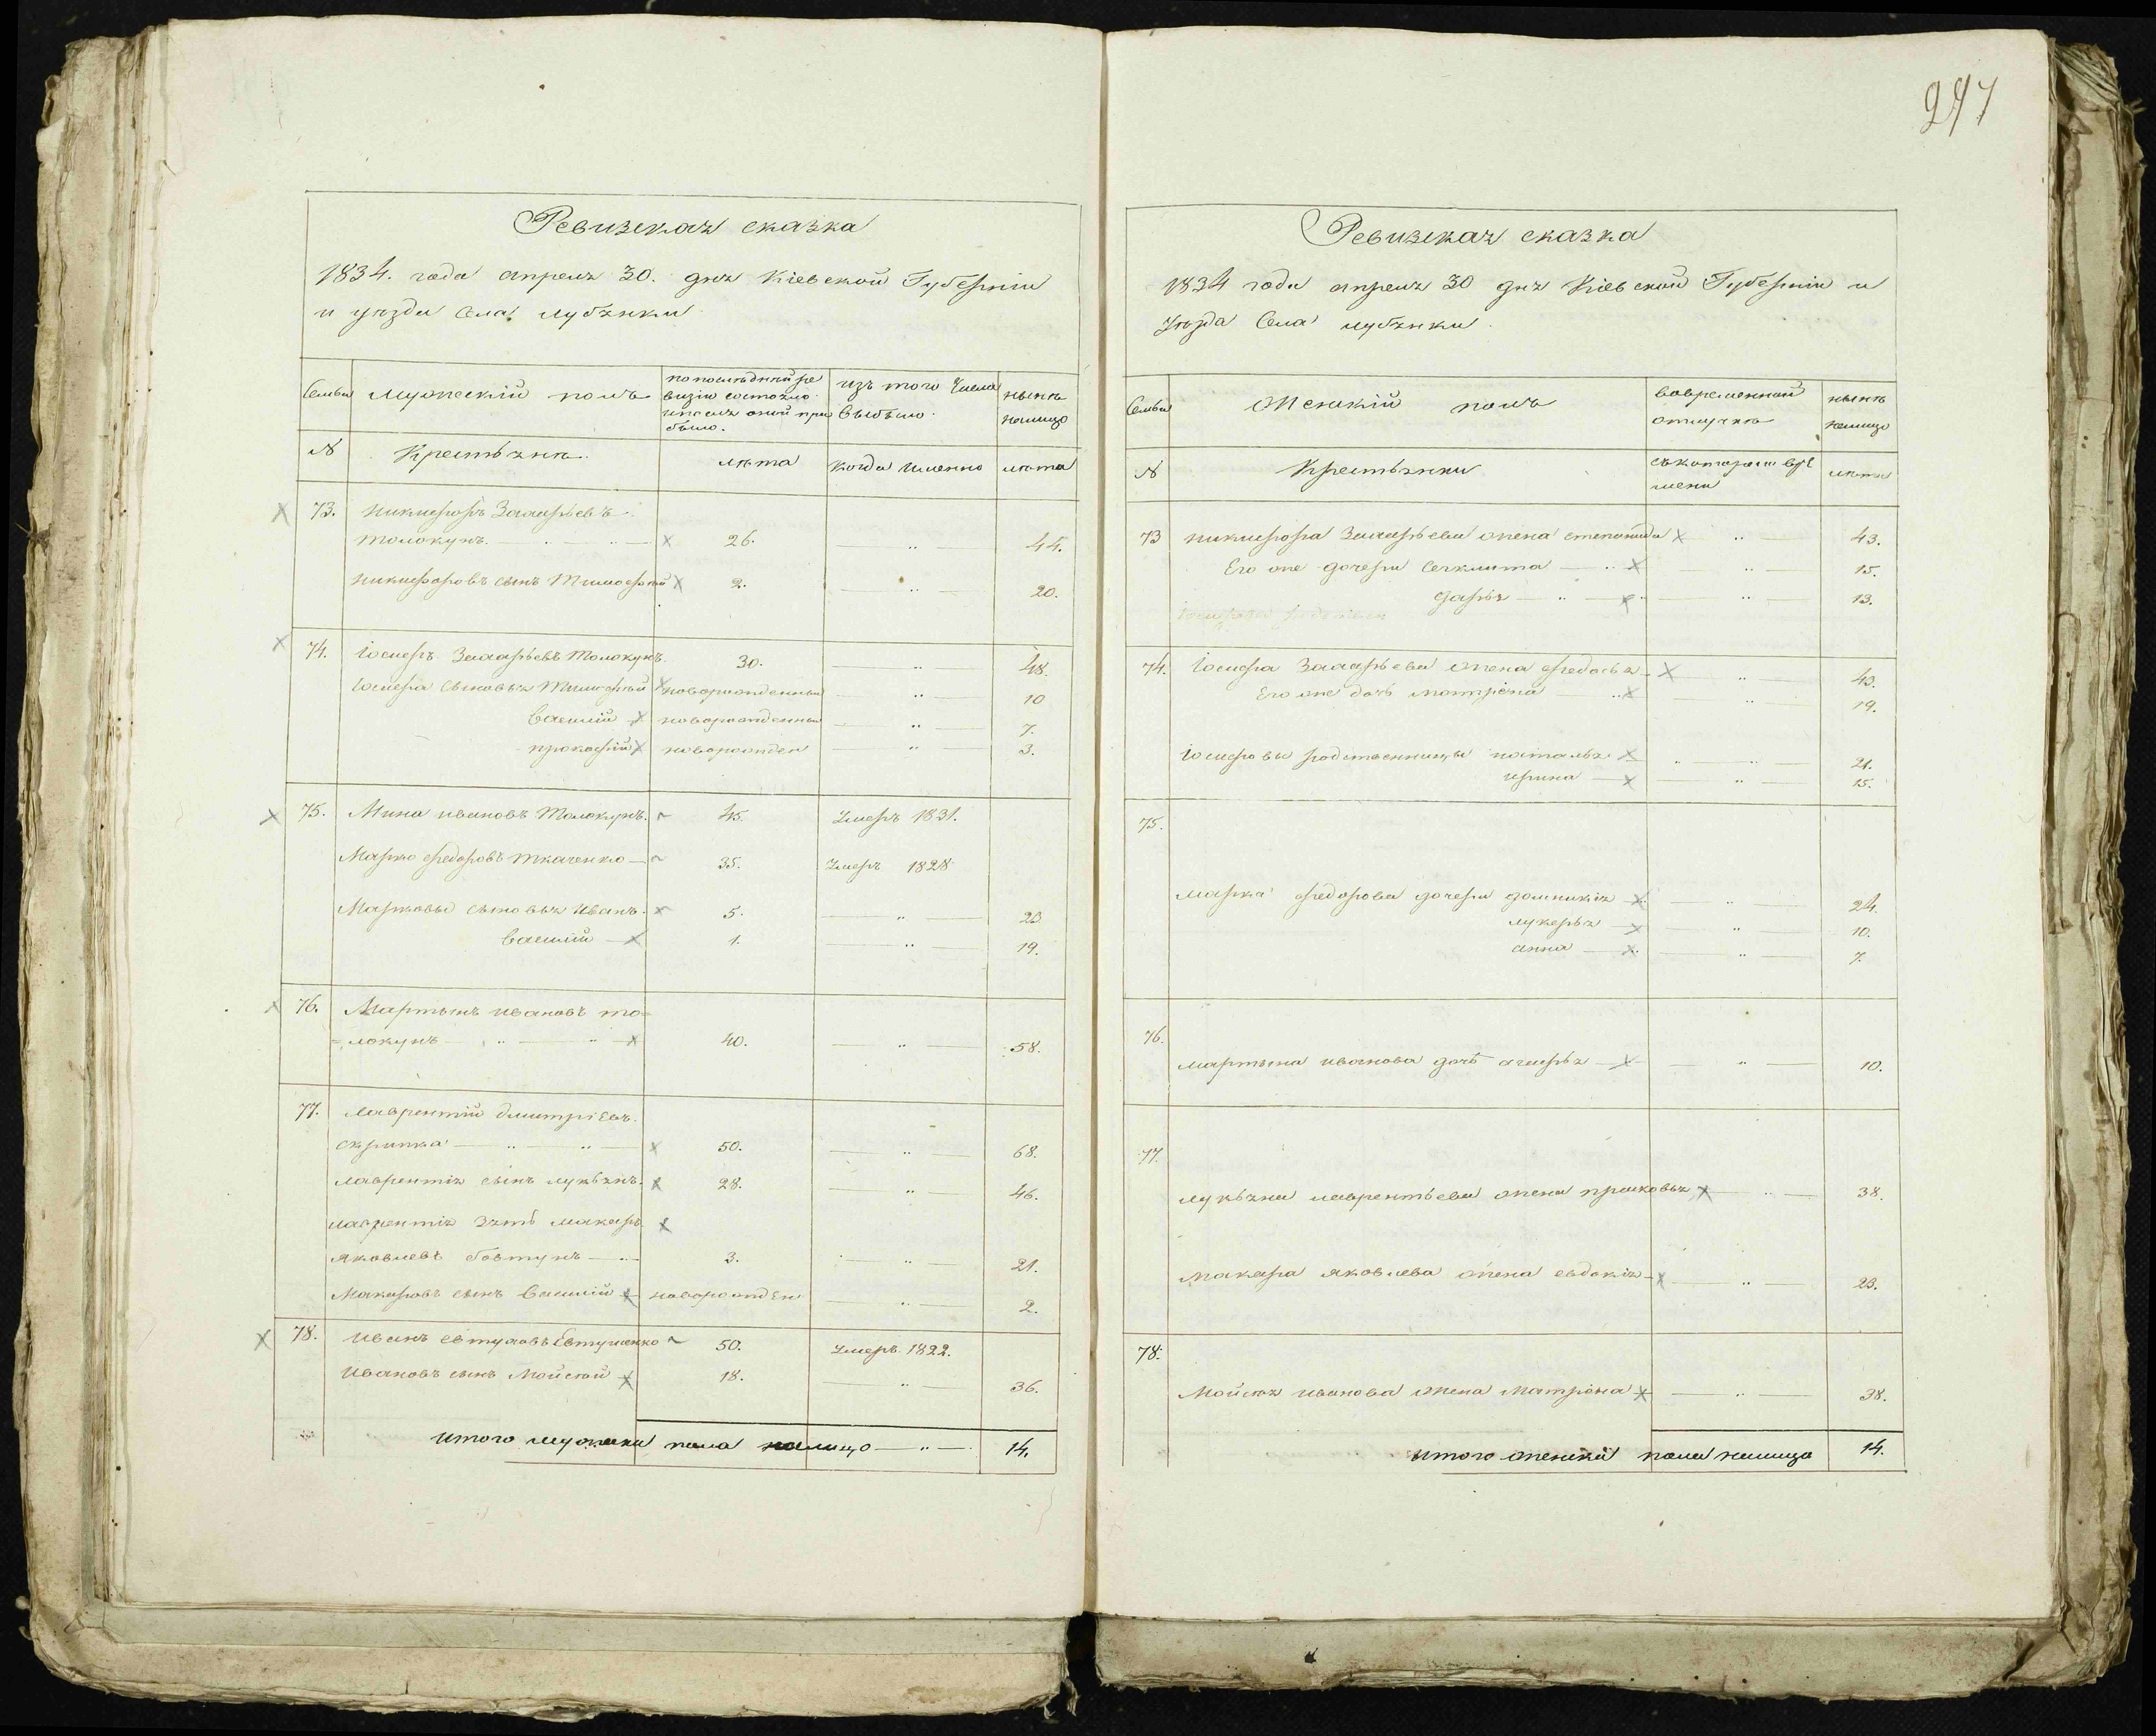 247
Ревизская сказка
1834. года апреля 30. дня Кіевской Губерніи
и уезда Села Лубянки
Семьи Мужескій полъ по последней ре изъ того Числа ныне
визіи состояло выбыло. налицо
и после оной при
было.
№ Крестьяне лета когда именно лета
73. Никифоръ Захарьевъ
Толокунъ. 26. 44.
Никифоровъ сынъ Тимофей 2. 20.
74. Іосифъ Захарьевъ Толокунъ. 30. 48.
Іосифа сыновья Тимофей новорожденный 10
Василій новорожденный 7.
прокофій новорожден 3.
75. Мина ивановъ Толокунъ. 45. Умеръ 1831.
Марко федоровъ ткаченко 35. Умеръ 1828
Марковы сыновья Иванъ. 5. 23
Василій 1. 19.
76. Мартынъ ивановъ то=
=локунъ 40. 58.
77. Лаврентій дмитріевъ.
скрипка 50. 68.
Лаврентія сынъ лукьянъ. 28. 46.
Лаврентія зять макаръ
яковлевъ бовтунъ 3. 21.
Макаровъ сынъ Василій новорожден 2.
78. Иванъ евтуховъ Евтушенко 50. Умеръ 1822.
Ивановъ сынъ Мойсей 18. 36.
Итого мужеска пола налицо 14.
Ревизская сказка
1834 года апреля 30 дня Кіевской Губерніи и
Уезда Села лубянки.
Семьи Женскій полъ вовременной ныне
отлучке налицо
№ Крестьянки съкотораго вре лета
мени
73 никифора Захарьева жена степанида 43.
Его же дочери 15.
дарья 13.
74. Іосифа Захарьева жена федосья 43.
Его же дочь мотрена 19.
Іосифовы родственницы наталья 21.
ирина 15.
75.
марка федорова дочери домникія 24.
лукерья 10.
анна 7.
76.
мартына иванова дочь 10.
77.
лукьяна лаврентьева жена прасковья 38.
макара яковлева жена евдокія 23.
78.
Мойсея иванова жена матрена 38.
Итого женска пола налицо 14.